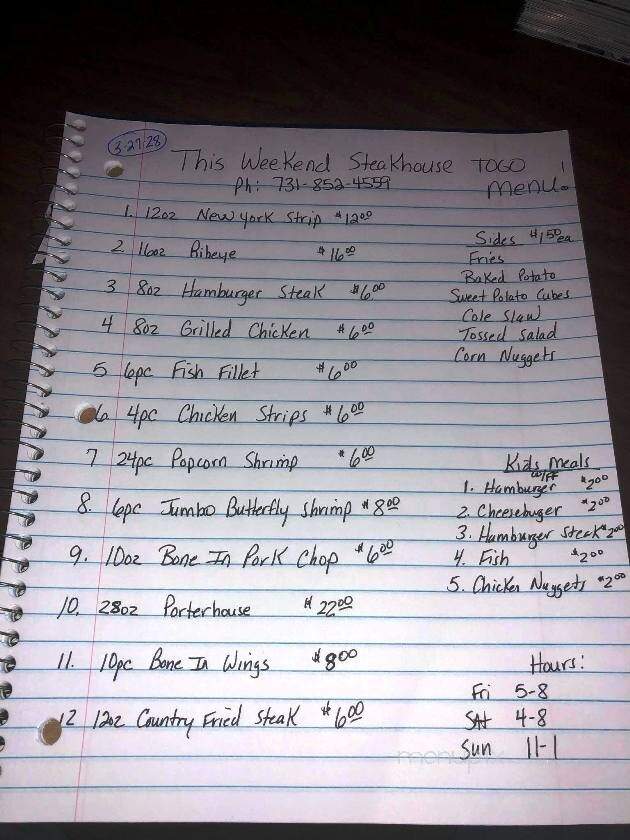 3-27-28
This Weekend Steakhouse TOGO
Ph: 731-852-4559 menu.
1. 12oz New york Strip $12.00
2 16oz Ribeye $16.00
3 8oz Hamburger Steak $6.00
4 8oz Grilled Chicken $6.00
5 6pc Fish Fillet $6.00
6 4pc Chicken Strips $6.00
7 24pc Popcorn Shrimp $6.00
8. 6pc Jumbo Butterfly Shrimp $8.00
9. 10oz Bone In Pork Chop $6.00
10. 28oz Porterhouse $22.00
11. 10pc Bone In Wings $8.00
12 12oz Country Fried Steak $6.00
Sides $1.50 ea
Fries
Baked Potato
Sweet Potato Cubes
Cole Slaw
Tossed Salad
Corn Nuggets
Kids Meals
w/FF
1. Hamburger $2.00
2. Cheeseburger $2.00
3. Hamburger Steak $2.00
4. Fish $2.00
5. Chicken Nuggets $2.00
Hours:
Fri 5-8
SAt 4-8
Sun 11-1